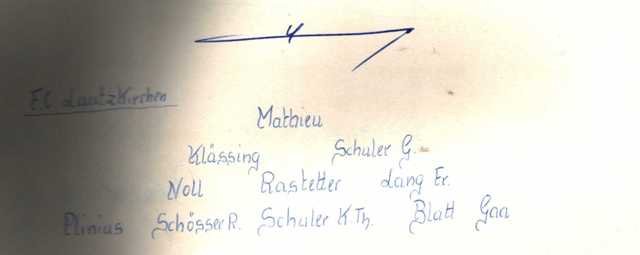 F.C Lautzkirchen
Mathieu
Klässing Schuler G.
Noll Rastetter Lang Er.
Plinius Schösser R. Schuler K.Th. Blatt Gaa